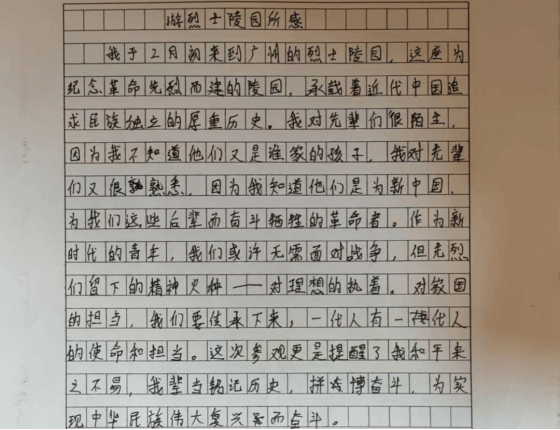 游烈士陵园所感
我于2月初来到广州的烈士陵园，这座为
纪念革命先烈而建的陵园，承载着近代中国追
求民族独立的厚重历史。我对先辈们很陌生，
因为我不知道他们又是谁家的孩子，我对先辈
们又很熟悉，因为我知道他们是为新中国、
为我们这些后辈而奋斗牺牲的革命者。作为新
时代的青年，我们或许无需面对战争，但先烈
们留下的精神火种——对理想的执着。对家国
的担当，我们要传承下来，一代人有一代人
的使命和担当。这次参观更是提醒了我和平来
之不易，我辈当铭记历史，拼搏奋斗，为实
现中华民族伟大复兴而奋斗。